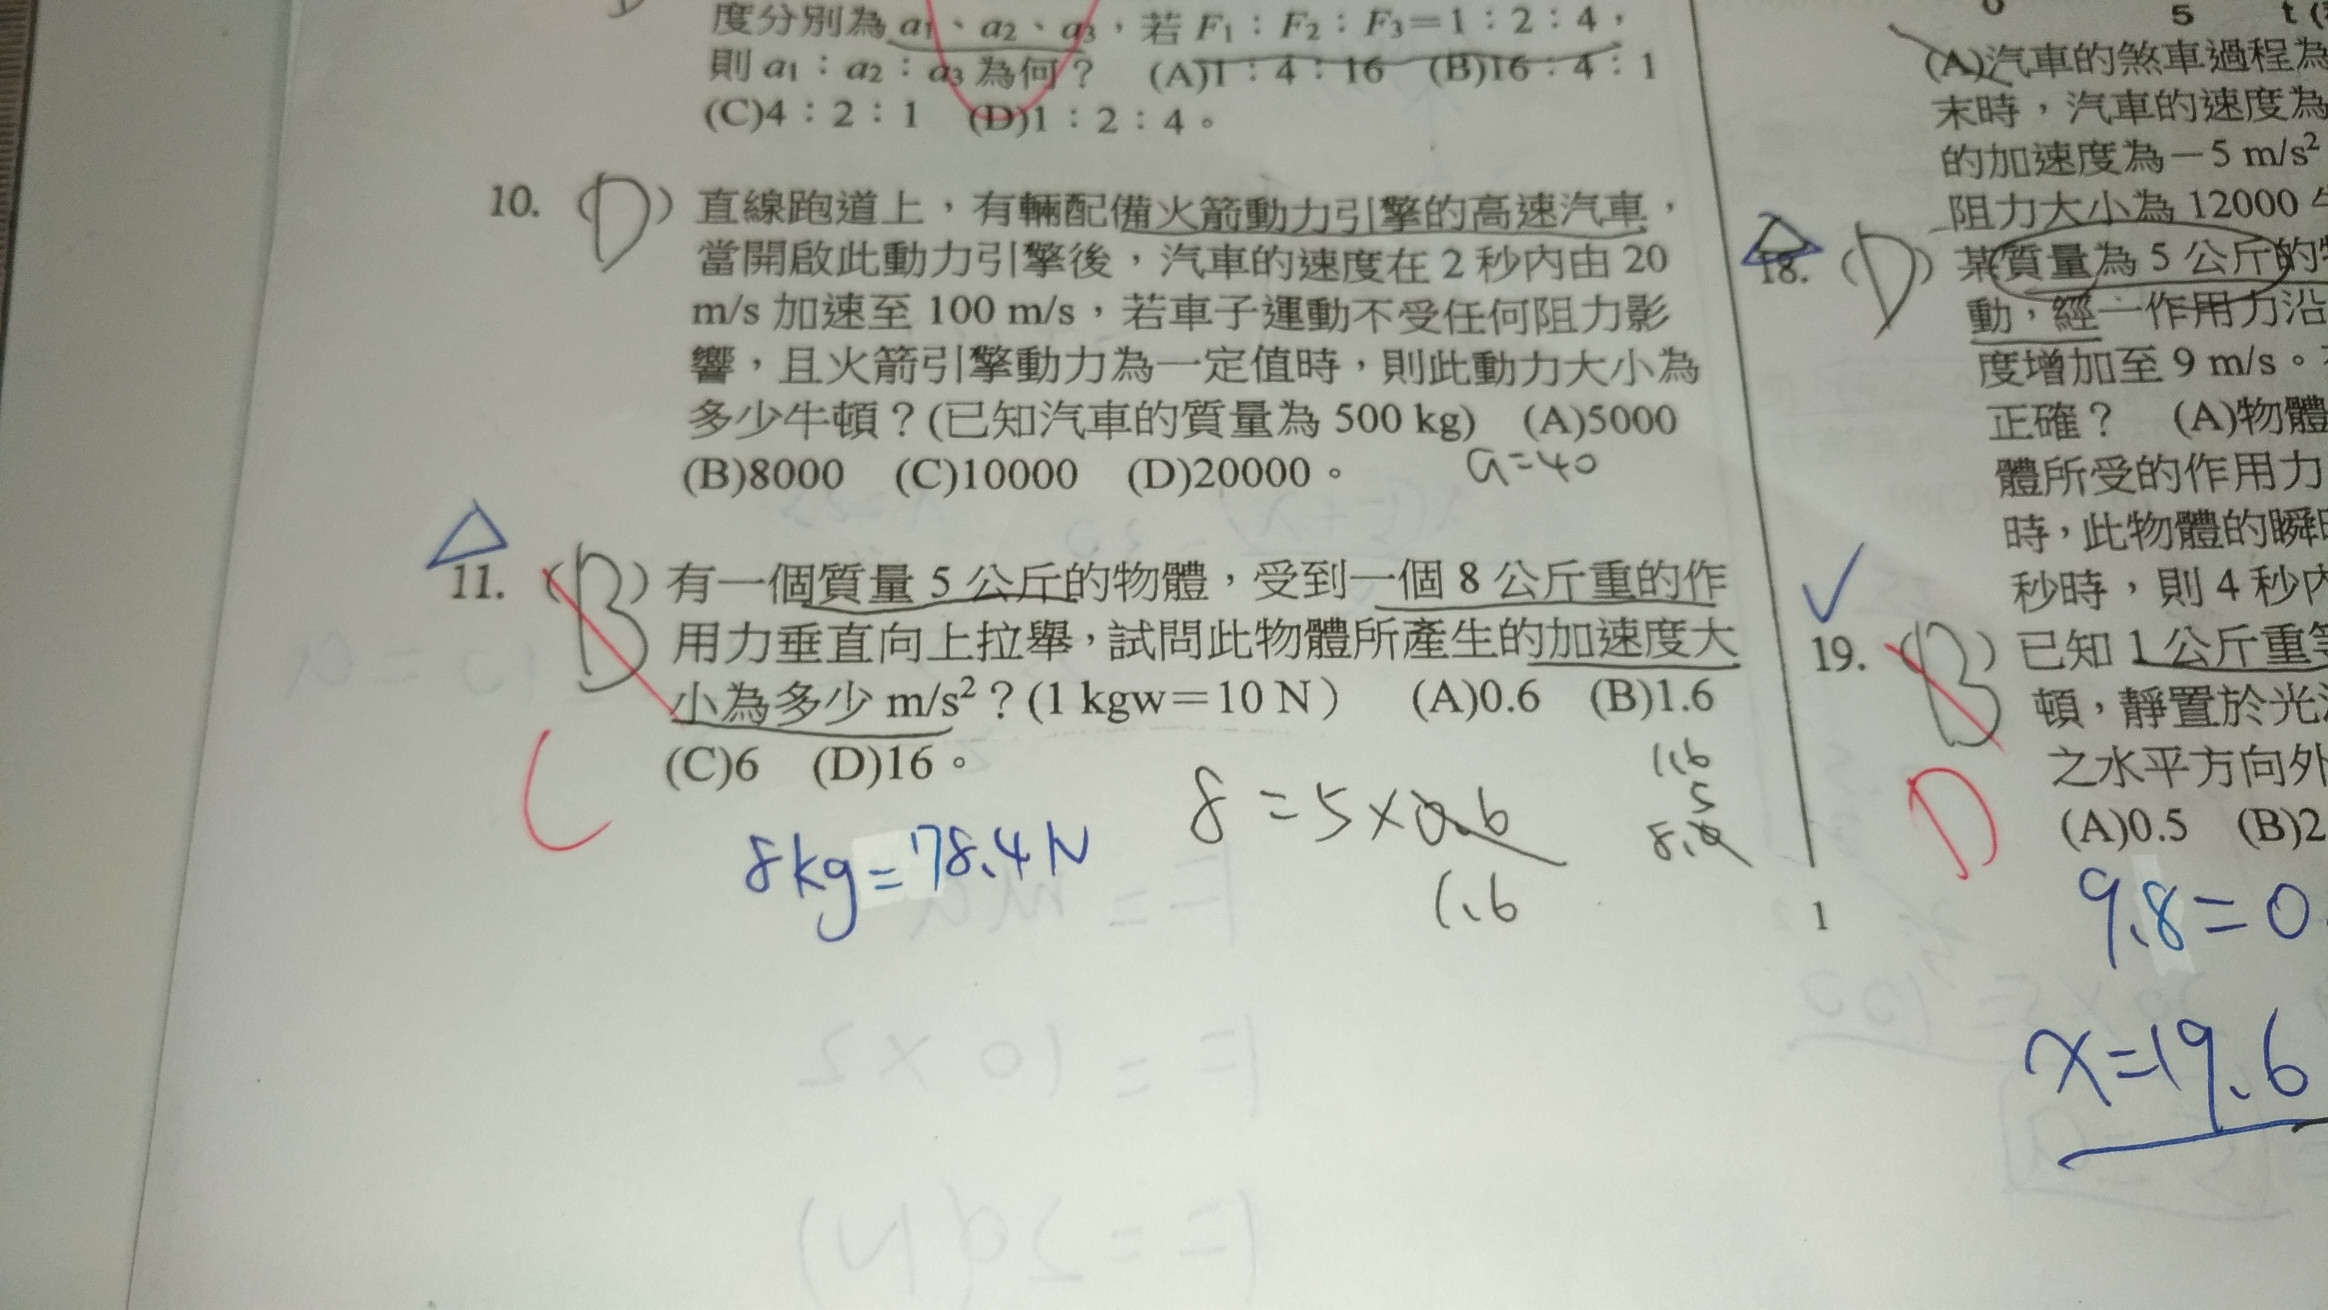 度分別為 a1、a2、a3，若 F1：F2：F3＝1：2：4，
則 a1：a2：a3 為何？ (A)1：4：16 (B)16：4：1
(C)4：2：1 (D)1：2：4。
10. (D) 直線跑道上，有輛配備火箭動力引擎的高速汽車，
當開啟此動力引擎後，汽車的速度在 2 秒內由 20
m/s 加速至 100 m/s，若車子運動不受任何阻力影
響，且火箭引擎動力為一定值時，則此動力大小為
多少牛頓？(已知汽車的質量為 500 kg) (A)5000
(B)8000 (C)10000 (D)20000。
a=40
11. (B) 有一個質量 5 公斤的物體，受到一個 8 公斤重的作
用力垂直向上拉舉，試問此物體所產生的加速度大
小為多少 m/s²？(1 kgw＝10 N) (A)0.6 (B)1.6
(C)6 (D)16。
C
8kg=78.4N
8=5×0.6
1.6
1.6
5
8.0
1
5 t
(A)汽車的煞車過程為
末時，汽車的速度為
的加速度為－5 m/s²
阻力大小為 12000
18. (D) 某質量為 5 公斤的
動，經一作用力沿
度增加至 9 m/s。
正確？ (A)物體
體所受的作用力
時，此物體的瞬
秒時，則 4 秒內
19. (B) 已知 1 公斤重等
頓，靜置於光
之水平方向外
(A)0.5 (B)2
D
9.8=0.
x=19.6